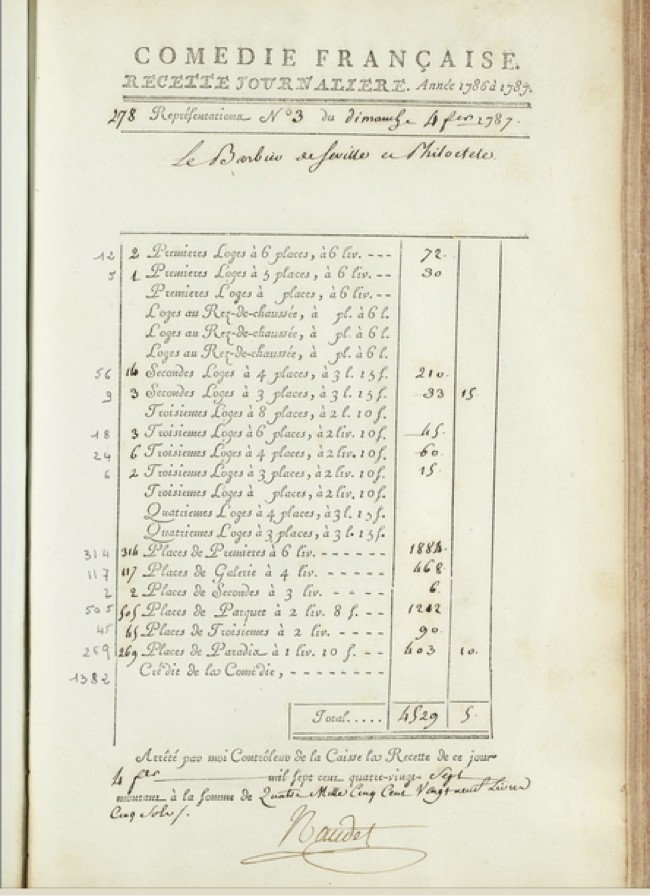 COMEDIE FRANÇAISE.
RECETTE JOURNALIERE. Année 1786 à 1787.
278 Représentations N° 3 du dimanche 4 fer 1787.
Le Barbier de Seville et Philoctete.
12 2 Premieres Loges à 6 places, à 6 liv. --- 72.
5 1 Premieres Loges à 5 places, à 6 liv. -- 30
Premieres Loges à places, à 6 liv. --
Loges au Rez-de-chaussée, à pl. à 6 l.
Loges au Rez-de-chaussée, à pl. à 6 l.
Loges au Rez-de-chaussée, à pl. à 6 l.
56 14 Secondes Loges à 4 places, à 3 l. 15 ſ. 210.
9 3 Secondes Loges à 3 places, à 3 l. 15 ſ. 33 15.
Troisiemes Loges à 8 places, à 2 l. 10 ſ.
18 3 Troisiemes Loges à 6 places, à 2 liv. 10 ſ. 45.
24 6 Troisiemes Loges à 4 places, à 2 liv. 10 ſ. 60.
6 2 Troisiemes Loges à 3 places, à 2 liv. 10 ſ. 15.
Troisiemes Loges à places, à 2 liv. 10 ſ.
Quatriemes Loges à 4 places, à 3 l. 15 ſ.
Quatriemes Loges à 3 places, à 3 l. 15 ſ.
314 314 Places de Premieres à 6 liv. ------ 1884.
117 117 Places de Galerie à 4 liv. ----- 468.
2 2 Places de Secondes à 3 liv. ----- 6.
505 505 Places de Parquet à 2 liv. 8 ſ. -- 1212
45 45 Places de Troisiemes à 2 liv. ---- 90.
269 269 Places de Paradis à 1 liv. 10 ſ. -- 403 10.
1382 Crédit de la Comédie, --------
Total ..... 4529 5.
Arrêté par moi Contrôleur de la Caisse la Recette de ce jour
4 fer mil sept cent quatre-vingt Sept
montant à la somme de Quatre Mille Cinq Cent Vingt neuf Livres
Cinq Sols /.
Naudet